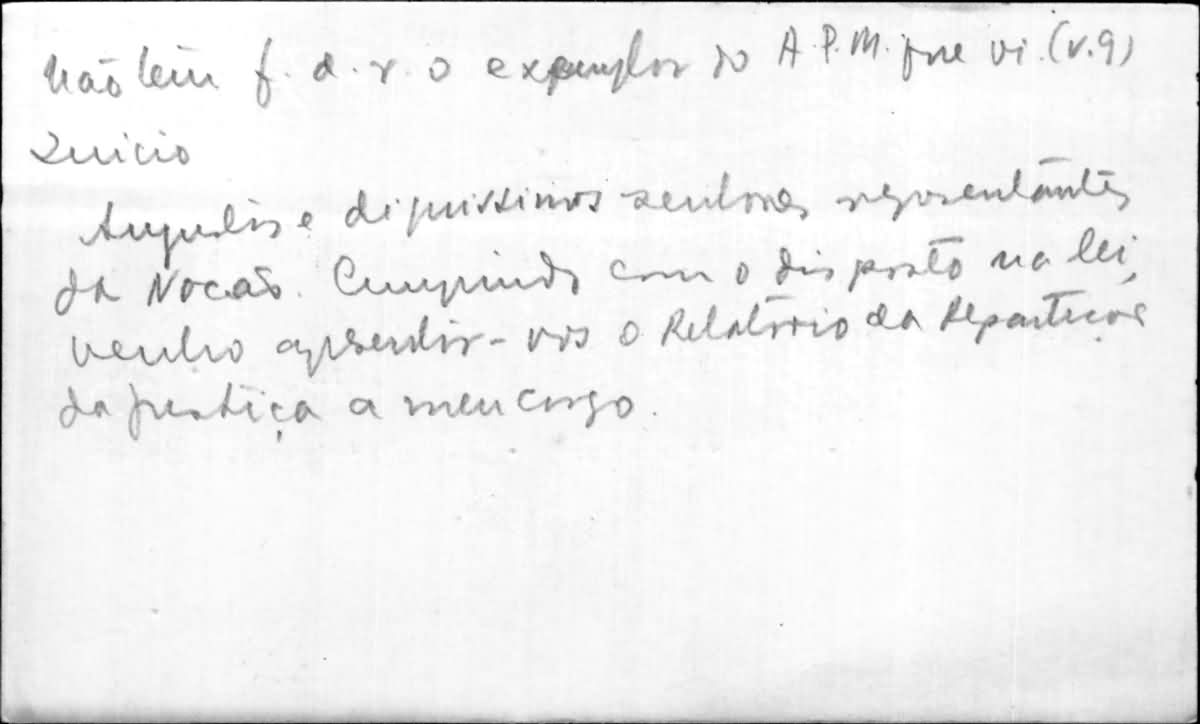 Não tem f. d. r. o exemplar do A.P.M. que vi. (v.9)
Início
Augustos e digníssimos senhores representantes
da Nação. Cumprindo com o disposto na lei,
venho apresentar-vos o Relatório da Repartição
da Justiça a meu cargo.